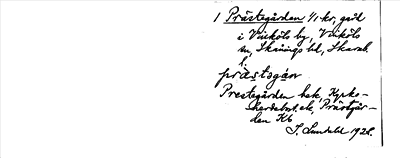 1 Prästegården 1/1 kr, gård
i Vinköls by, Vinköls
sn, Skånings hd, Skarab.
l.
prästgån
Prestegården bek, Kyrko-
herdebost. ek, Prästgår-
den Kb
I. Lundahl 1928.